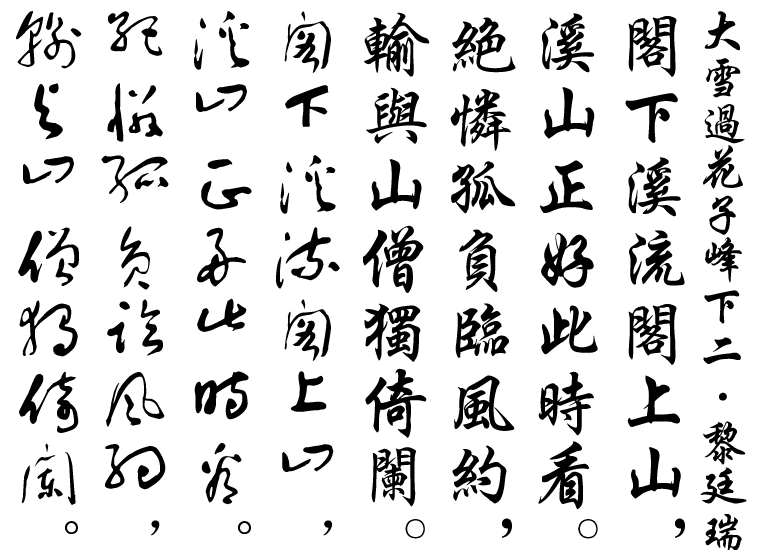 大雪過花子峰下二・黎廷瑞
閣下溪流閣上山，
溪山正好此時看。
絕憐孤負臨風約，
輸與山僧獨倚闌。
閣下溪流閣上山，
溪山正好此時看。
絕憐孤負臨風約，
輸與山僧獨倚闌。